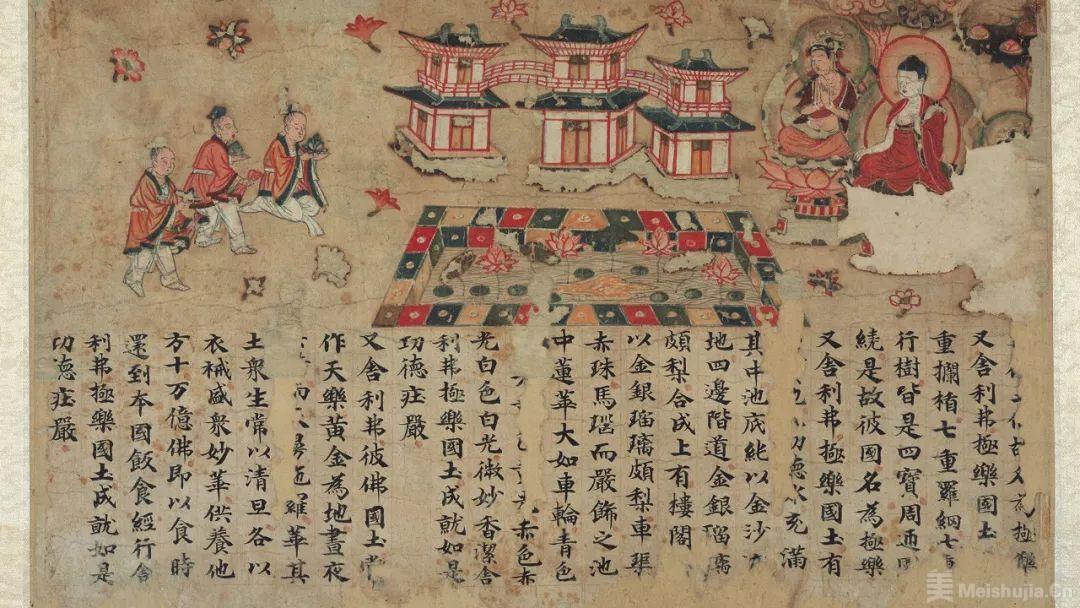 極樂
又舍利弗極樂國土
重欄楯七重羅網七
行樹皆是四寶周迊
繞是故彼國名為極樂
又舍利弗極樂國土有
功德水充滿
其中池底純以金沙
地四邊階道金銀瑠璃
頗梨合成上有樓閣
以金銀瑠璃頗梨車𤦲
赤珠馬瑙而嚴飾之池
中蓮華大如車輪青色
赤色赤
光白色白光微妙香潔舍
利弗極樂國土成就如是
功德莊嚴
又舍利弗彼佛國土常
作天樂黃金為地晝夜
雨羅華其
土衆生常以清旦各以
衣祴盛衆妙華供養他
方十万億佛即以食時
還到本國飯食經行舍
利弗極樂國土成就如是
功德莊嚴
美 Meishujia.Cn